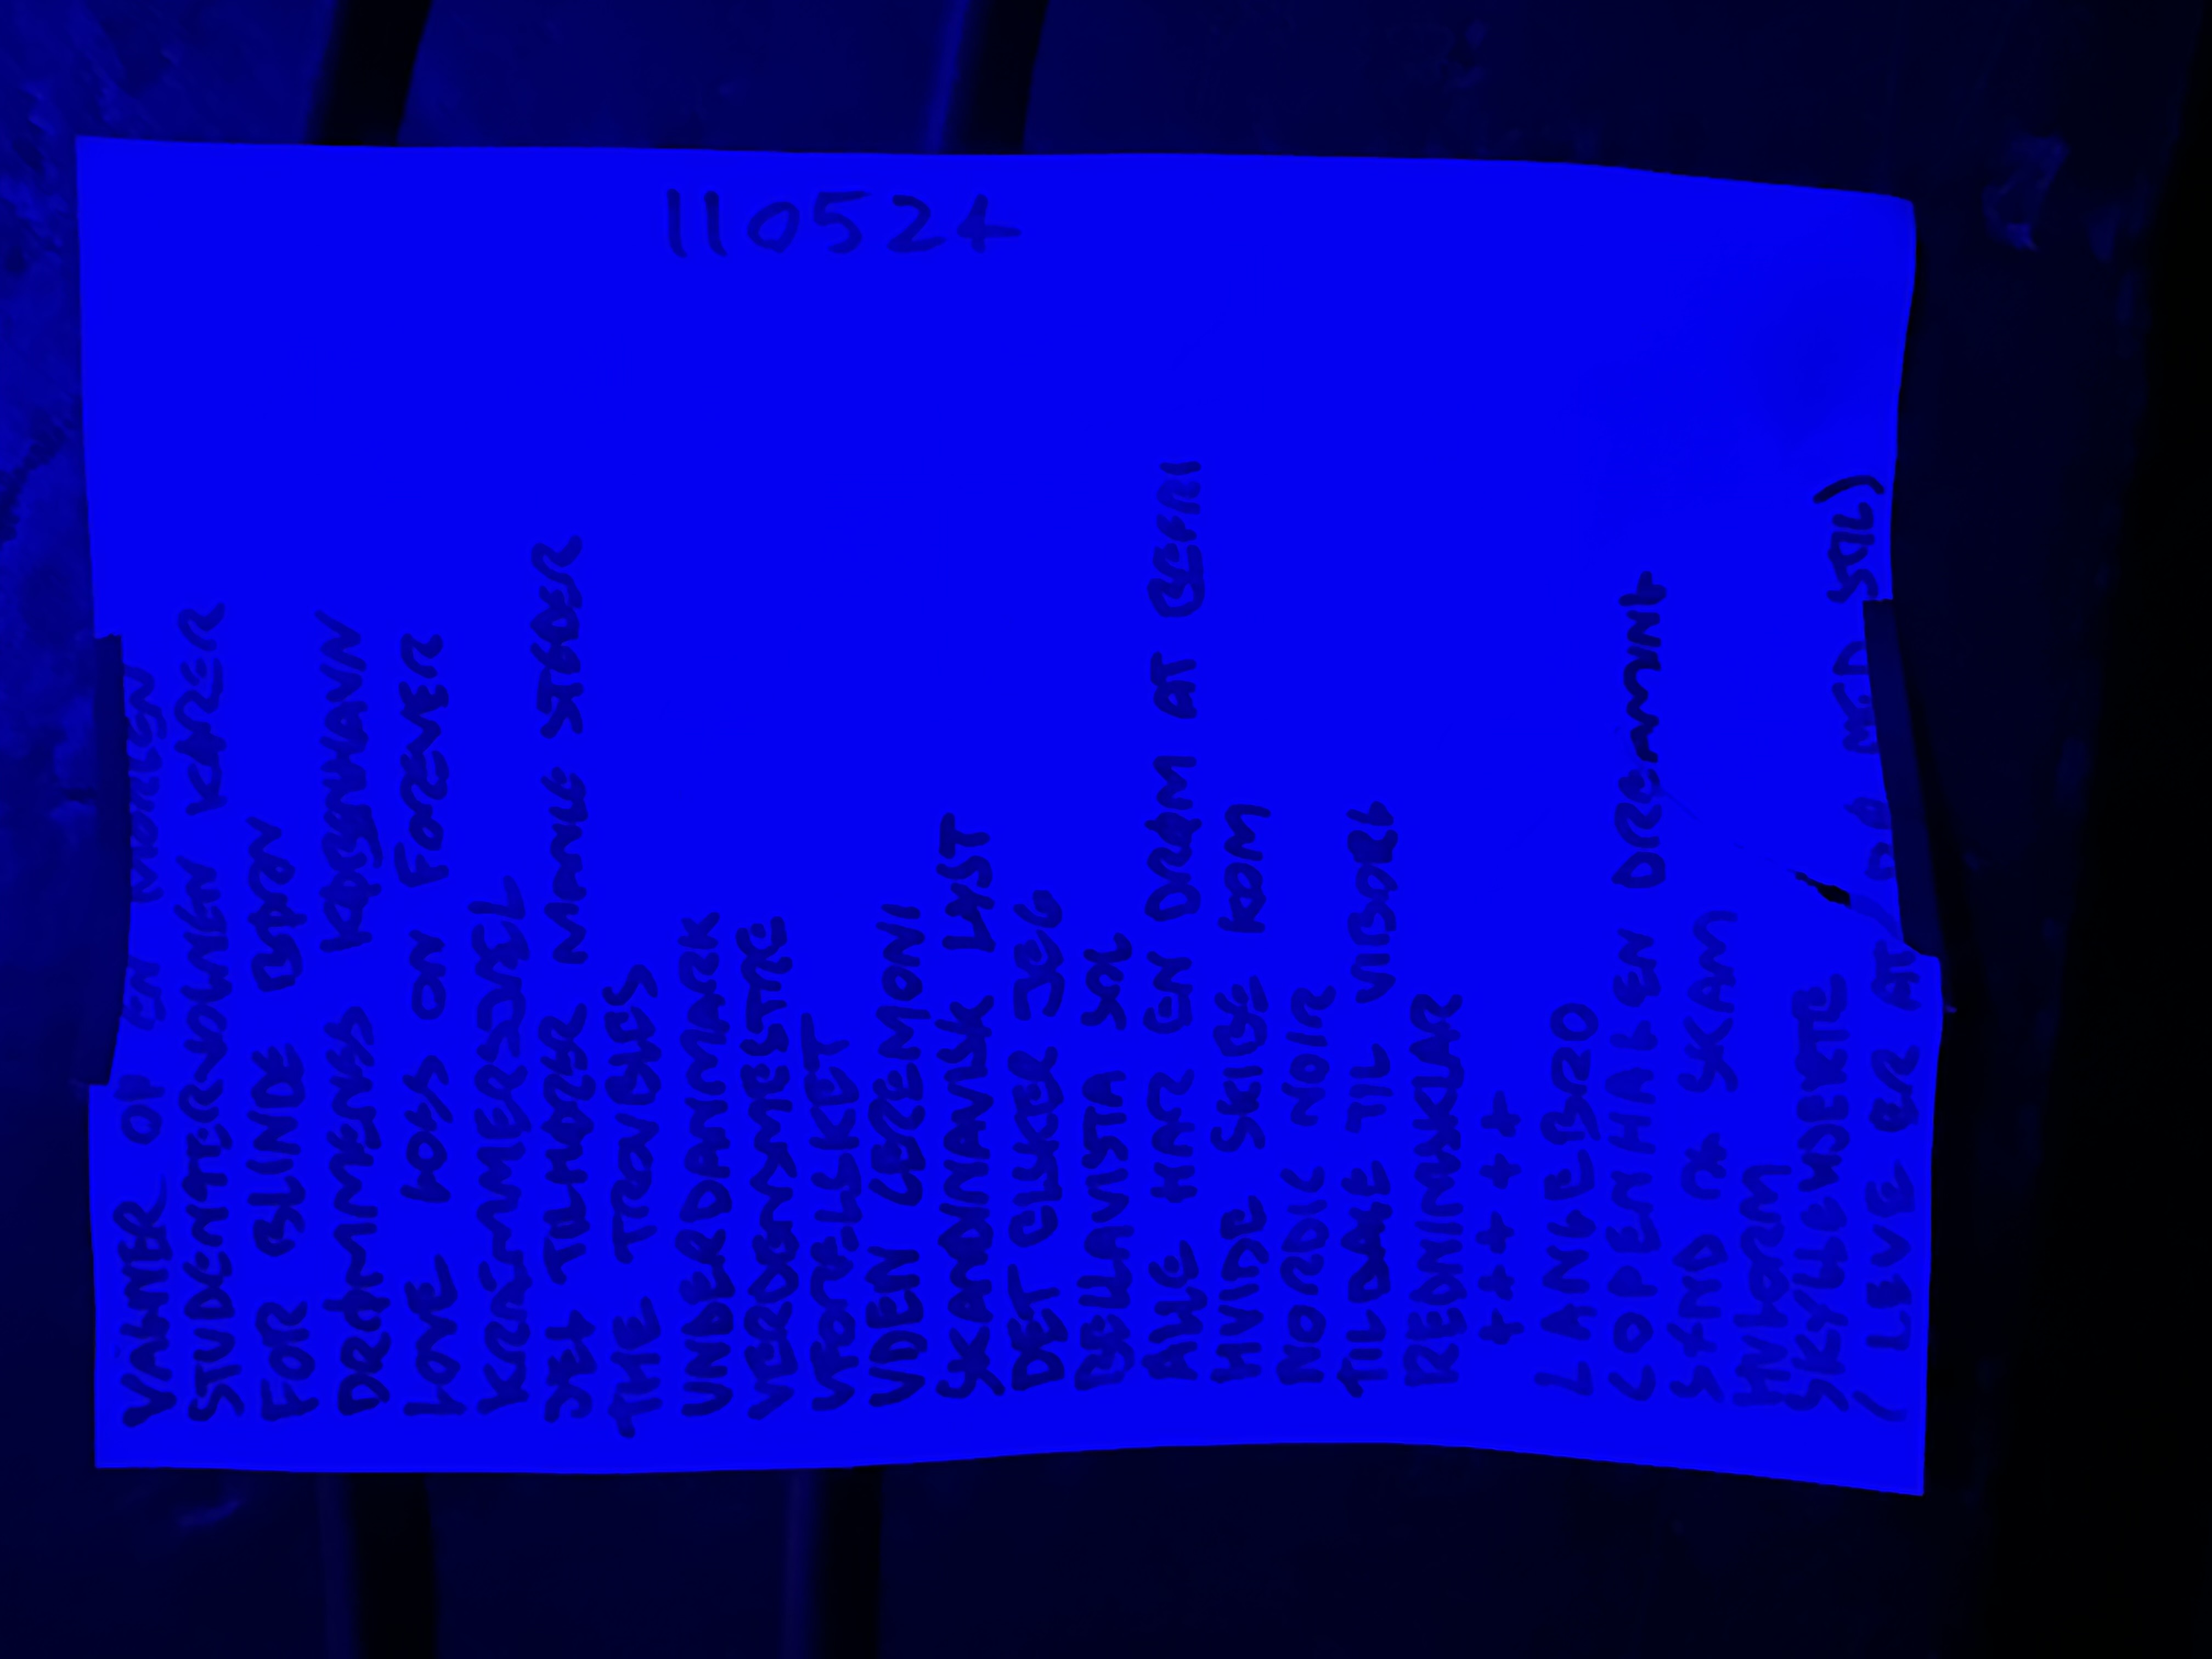 110524
VÅGNER OP EN MORGEN
STUDENTERVOGNEN KØRER
FOR BLINDE BØRN
DRØMMENES KØBENHAVN
LOVE HOS OM FOREVER
KRÆMMERSJÆL
JEG TILHØRER MANGE STEDER
TIME TRAVBLES
UNDERDANMARK
VERDENSMESTRE
VIDEN CEREMONI
SKANDINAVISK LYST
DET ELSKER JEG
BELLAVISTA SOL
ALLE HAR EN DRØM AT BEFRI
HVIDE SKIBE KOM
NORDIC NOIR
TILBAGE TIL VIBORG
REDNINGSKLAR
+ + + + +
LANGEBRO
COPENHAGEN DREAMING
SAND OG SKAM
INGORM
SKYGGEDIGTERE
(LEVE ER AT GØ MED STIL)